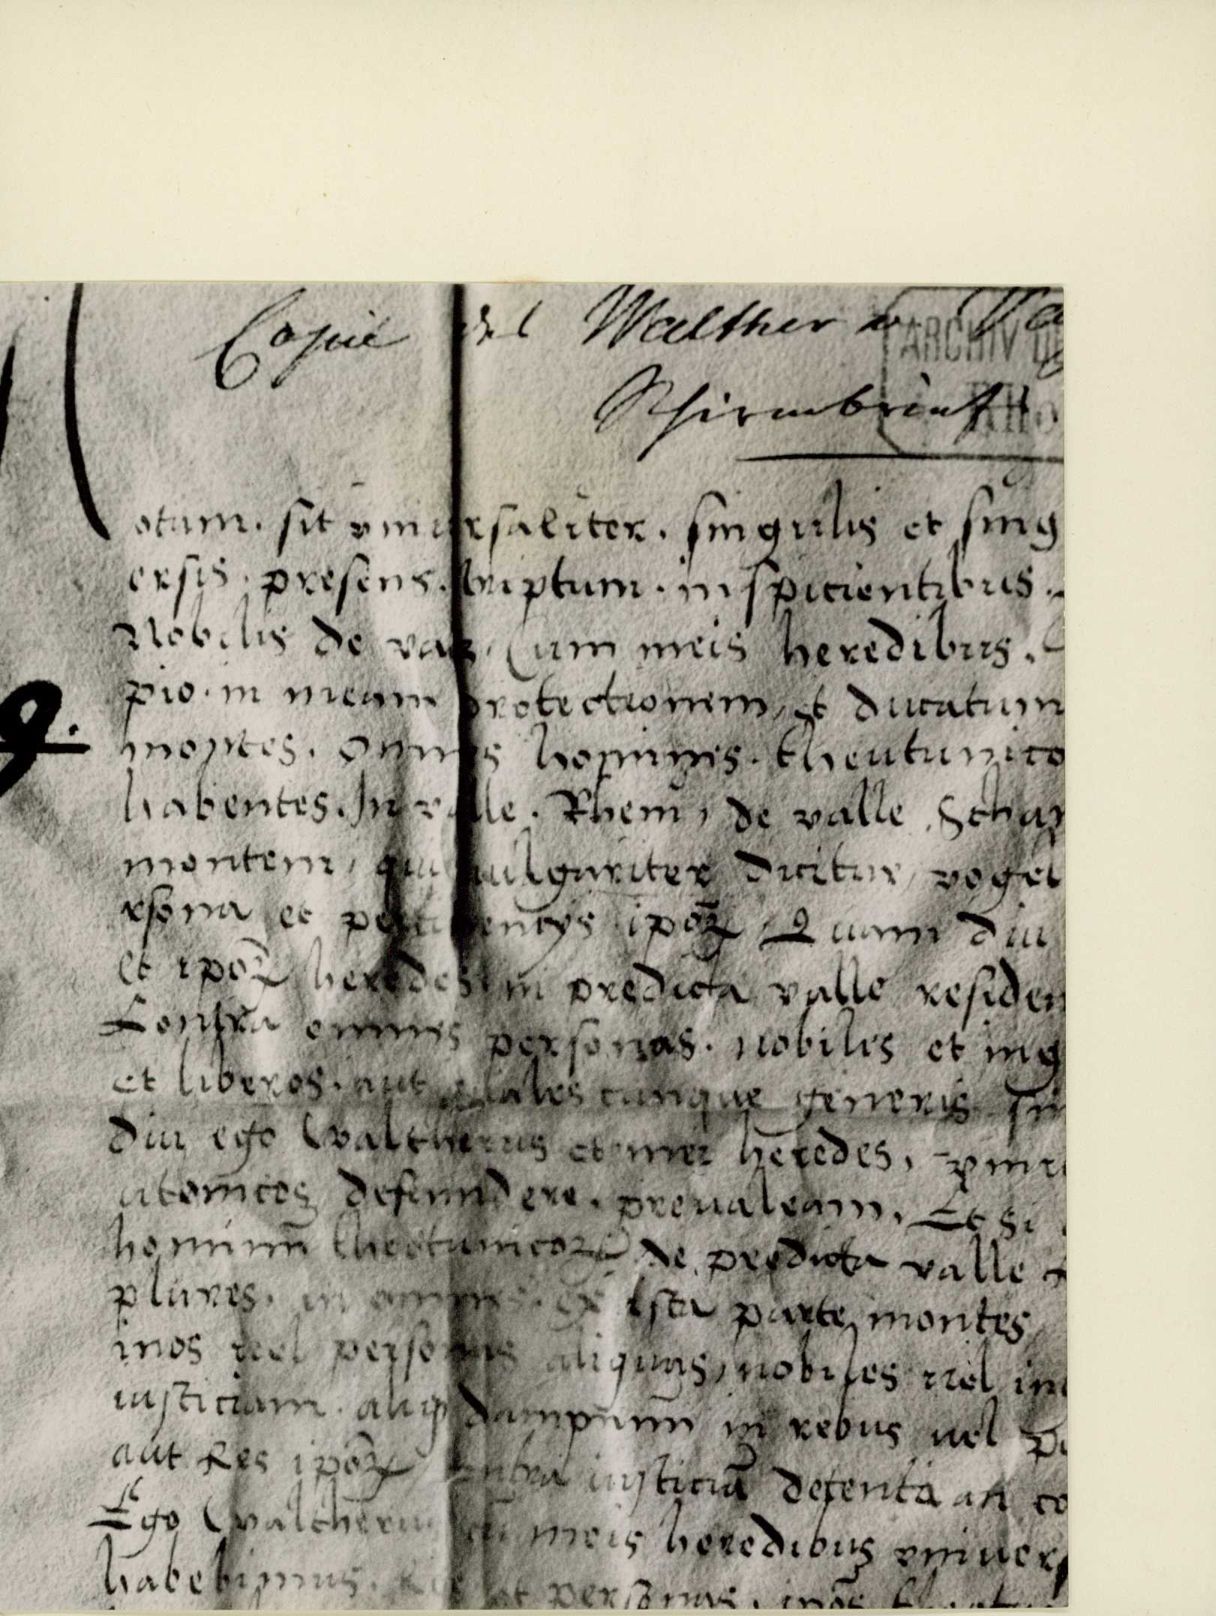 Copie del Walther v. Va
Schirmbrief
ARCHIV
otum. sit universaliter. singulis et sing
ersis. presens. scriptum. inspicientibus.
Nobilis de vaz. Cum meis heredibus.
pio. in meam protectionem, et ducatum
montes. omnes homines. theutunico
habentes. In valle. Rheni, de valle Schan
montem, qui vulgariter dicitur, vogel
rsona et pertinencys ipoꝝ Quam diu
et ipoꝝ heredes in predicta valle residen
Contra omnes personas. nobiles et ing
et liberos. aut quales cunque generis sin
diu ego Waltherus et mei heredes,
defendere. prevaleam. Et si
hominū theotunicoꝝ de predicta valle
plures. in omnes. ex ista parte montes
inos vel personas aliquas, nobiles vel in
iusticiam. dampnum in rebus vel
aut Res ipoꝝ contra iusticiā detenta
Ego Waltherus cū meis heredibus univers
habebimus. personas.